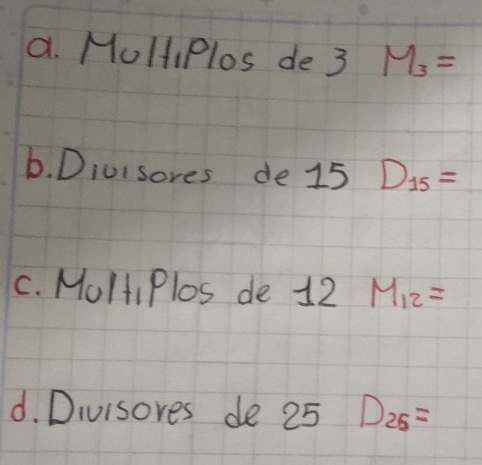 a. Multiplos de 3 M₃ =
b. Divisores de 15 D₁₅ =
c. Multiplos de 12 M₁₂ =
d. Divisores de 25 D₂₅ =